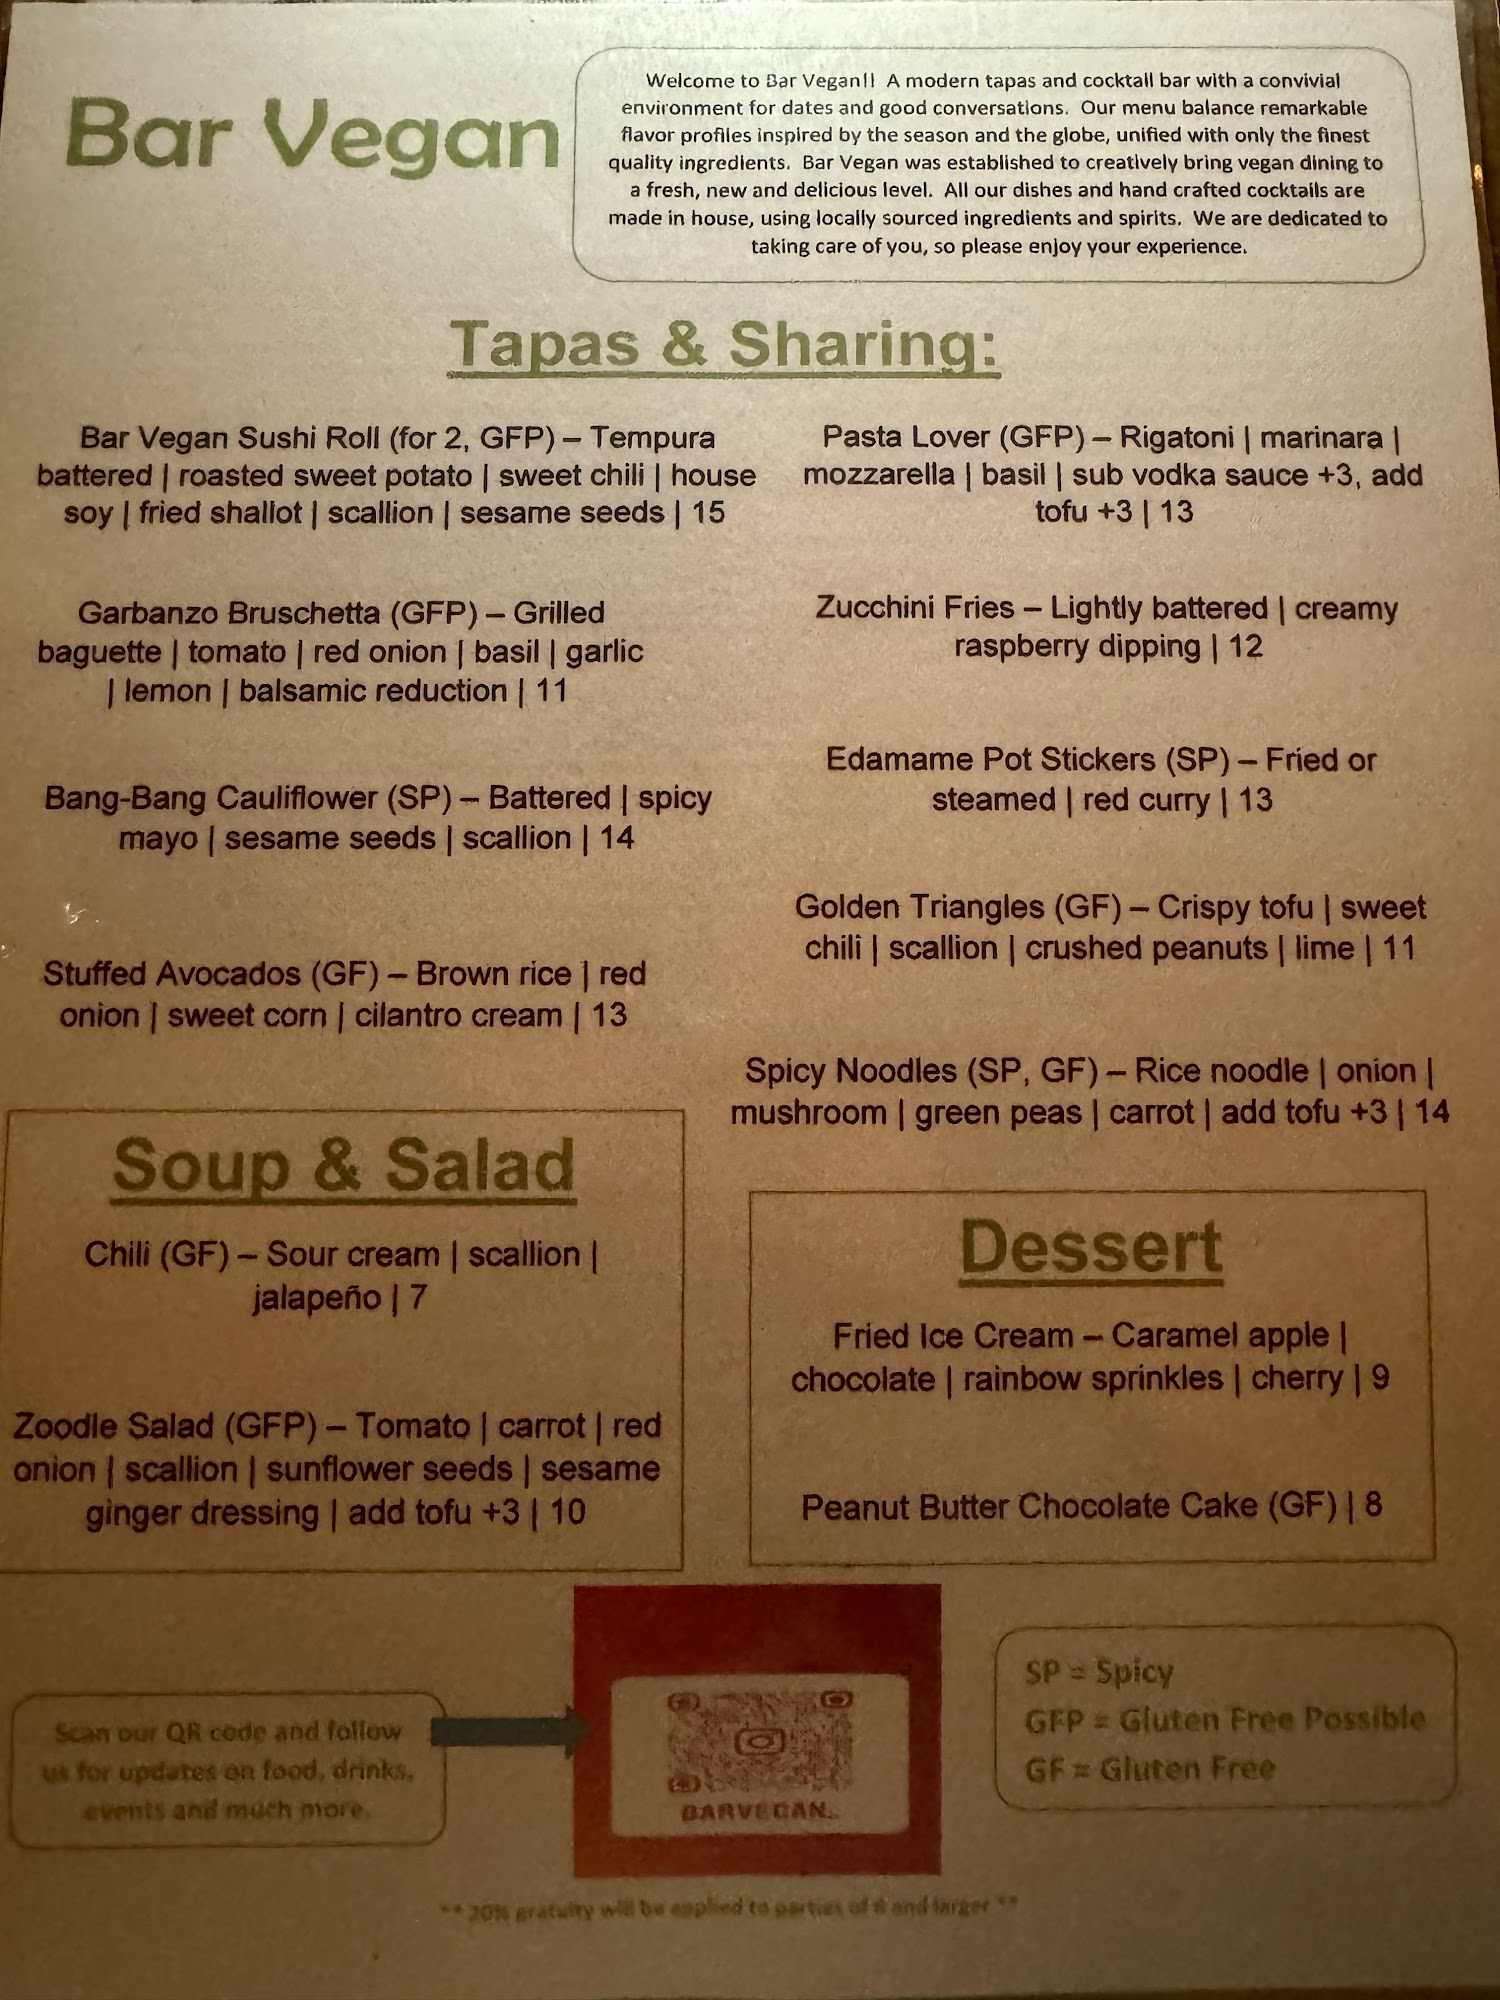 Bar Vegan
Welcome to Bar Vegan!! A modern tapas and cocktail bar with a convivial
environment for dates and good conversations. Our menu balance remarkable
flavor profiles inspired by the season and the globe, unified with only the finest
quality ingredients. Bar Vegan was established to creatively bring vegan dining to
a fresh, new and delicious level. All our dishes and hand crafted cocktails are
made in house, using locally sourced ingredients and spirits. We are dedicated to
taking care of you, so please enjoy your experience.
Tapas & Sharing:
Bar Vegan Sushi Roll (for 2, GFP) – Tempura
battered | roasted sweet potato | sweet chili | house
soy | fried shallot | scallion | sesame seeds | 15
Garbanzo Bruschetta (GFP) – Grilled
baguette | tomato | red onion | basil | garlic
| lemon | balsamic reduction | 11
Bang-Bang Cauliflower (SP) – Battered | spicy
mayo | sesame seeds | scallion | 14
Stuffed Avocados (GF) – Brown rice | red
onion | sweet corn | cilantro cream | 13
Pasta Lover (GFP) – Rigatoni | marinara |
mozzarella | basil | sub vodka sauce +3, add
tofu +3 | 13
Zucchini Fries – Lightly battered | creamy
raspberry dipping | 12
Edamame Pot Stickers (SP) – Fried or
steamed | red curry | 13
Golden Triangles (GF) – Crispy tofu | sweet
chili | scallion | crushed peanuts | lime | 11
Spicy Noodles (SP, GF) – Rice noodle | onion |
mushroom | green peas | carrot | add tofu +3 | 14
Soup & Salad
Chili (GF) – Sour cream | scallion |
jalapeño | 7
Zoodle Salad (GFP) – Tomato | carrot | red
onion | scallion | sunflower seeds | sesame
ginger dressing | add tofu +3 | 10
Dessert
Fried Ice Cream – Caramel apple |
chocolate | rainbow sprinkles | cherry | 9
Peanut Butter Chocolate Cake (GF) | 8
Scan our QR code and follow
us for updates on food, drinks,
events and much more.
BARVEGAN
SP = Spicy
GFP = Gluten Free Possible
GF = Gluten Free
** 20% gratuity will be applied to parties of and larger **